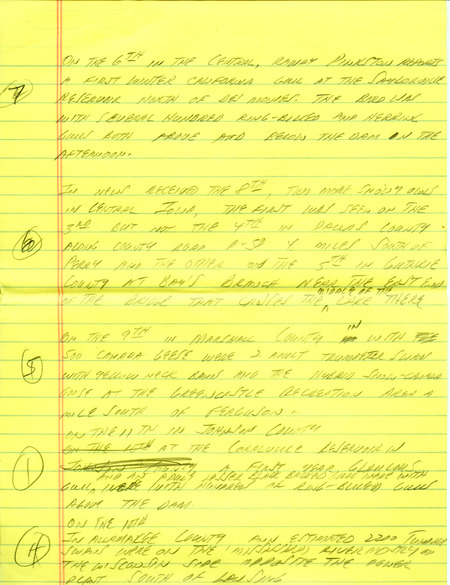 ON THE 6TH IN THE CENTRAL, RANDY PINKSTON REPORTS
7 A FIRST WINTER CALIFORNIA GULL AT THE SAYLORVILLE
RESERVOIR NORTH OF DES MOINES. THE BIRD WAS
WITH SEVERAL HUNDRED RING-BILLED AND HERRING
GULLS BOTH ABOVE AND BELOW THE DAM ON THE
AFTERNOON.
IN NEWS RECEIVED THE 8TH, TWO MORE SNOWY OWLS
IN CENTRAL IOWA, THE FIRST WAS SEEN ON THE
3RD BUT NOT THE 4TH IN DALLAS COUNTY
6 ALONG COUNTY ROAD 4 MILES SOUTH OF
PERRY AND THE OTHER ON THE 5TH IN GUTHRIE
COUNTY AT BAY'S BRANCH NEAR THE EAST END
OF THE BRIDGE THAT CROSSES THE MIDDLE OF THE LAKE THERE
ON THE 9TH IN MARSHALL COUNTY IN WITH
5 500 CANADA GEESE WERE 2 ADULT TRUMPETER SWANS
WITH YELLOW NECK BANDS AND THE HYBRID SNOW-CANADA
GOOSE AT THE GREENCASTLE RECREATION AREA A
MILE SOUTH OF FERGUSON.
ON THE 11TH IN JOHNSON COUNTY
1 ON THE 10TH AT THE CORALVILLE RESERVOIR IN
JOHNSON COUNTY A FIRST YEAR GLAUCOUS
AND AN ADULT LESSER BLACK BACKED THAT WERE WITH
GULL, WERE WITH HUNDREDS OF RING-BILLED GULLS
ABOVE THE DAM.
ON THE 10TH
4 IN ALLAMAKEE COUNTY AN ESTIMATED 2200 TUNDRA
SWANS WERE ON THE MISSISSIPPI RIVER MOSTLY ON
THE WISCONSIN SIDE OPPOSITE THE POWER
PLANT SOUTH OF LANSING